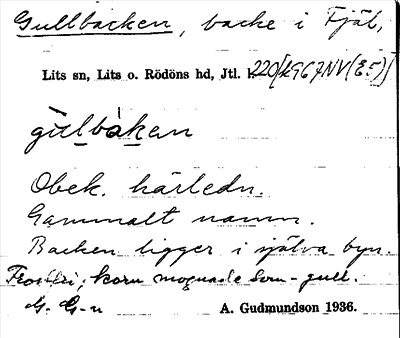 Gullbacken, backe i Fjäl,
Lits sn, Lits o. Rödöns hd, Jtl. k. 220[1967NV(E5)]
gùlbákan
Obek. härledn.
Gammalt namn.
Backen ligger i själva byn.
Frostfri; korn mognade som gull.
G. G-n A. Gudmundson 1936.